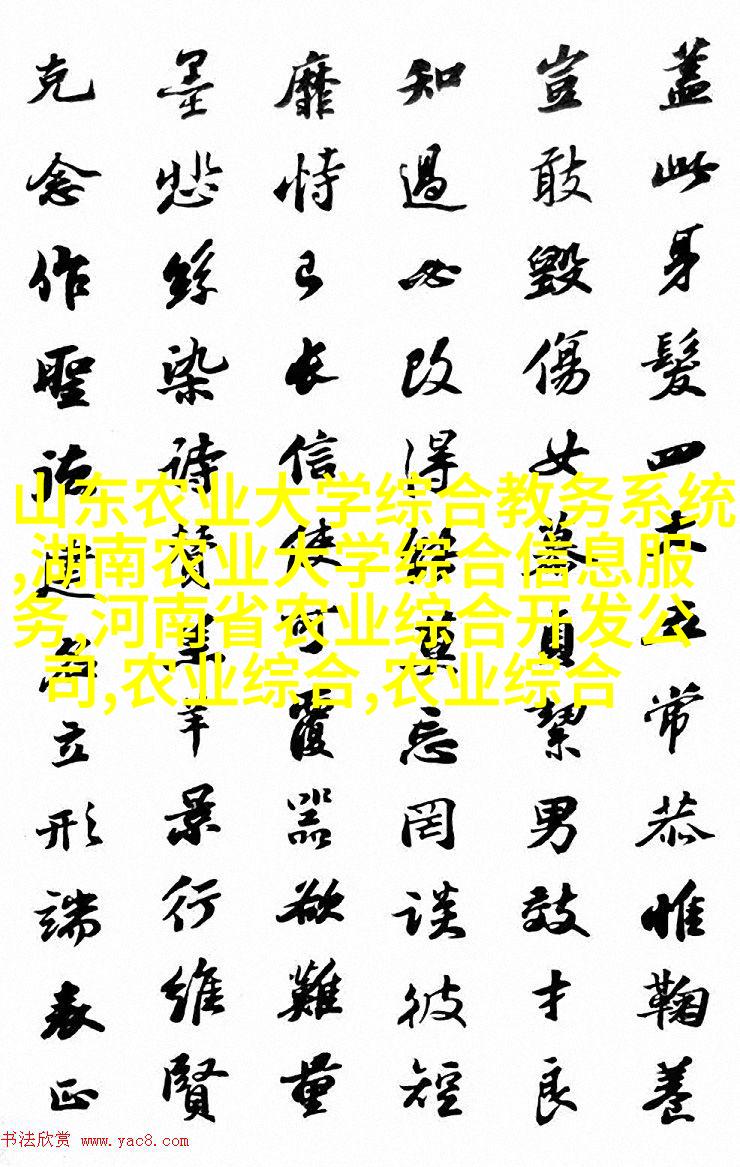 蓋此身髮四大五常恭惟鞠養
豈敢毀傷女慕貞絜男效才良
知過必改得能莫忘罔談彼短
靡恃己长信使可覆器欲難量
墨悲絲染詩讚羔羊景行維賢
克念作聖德建名立形端表正
山东农业大学综合教务系统
,湖南农业大学综合信息服
务,河南省农业综合开发公
司,农业综合,农业综合
书法欣赏 www.yac8.com